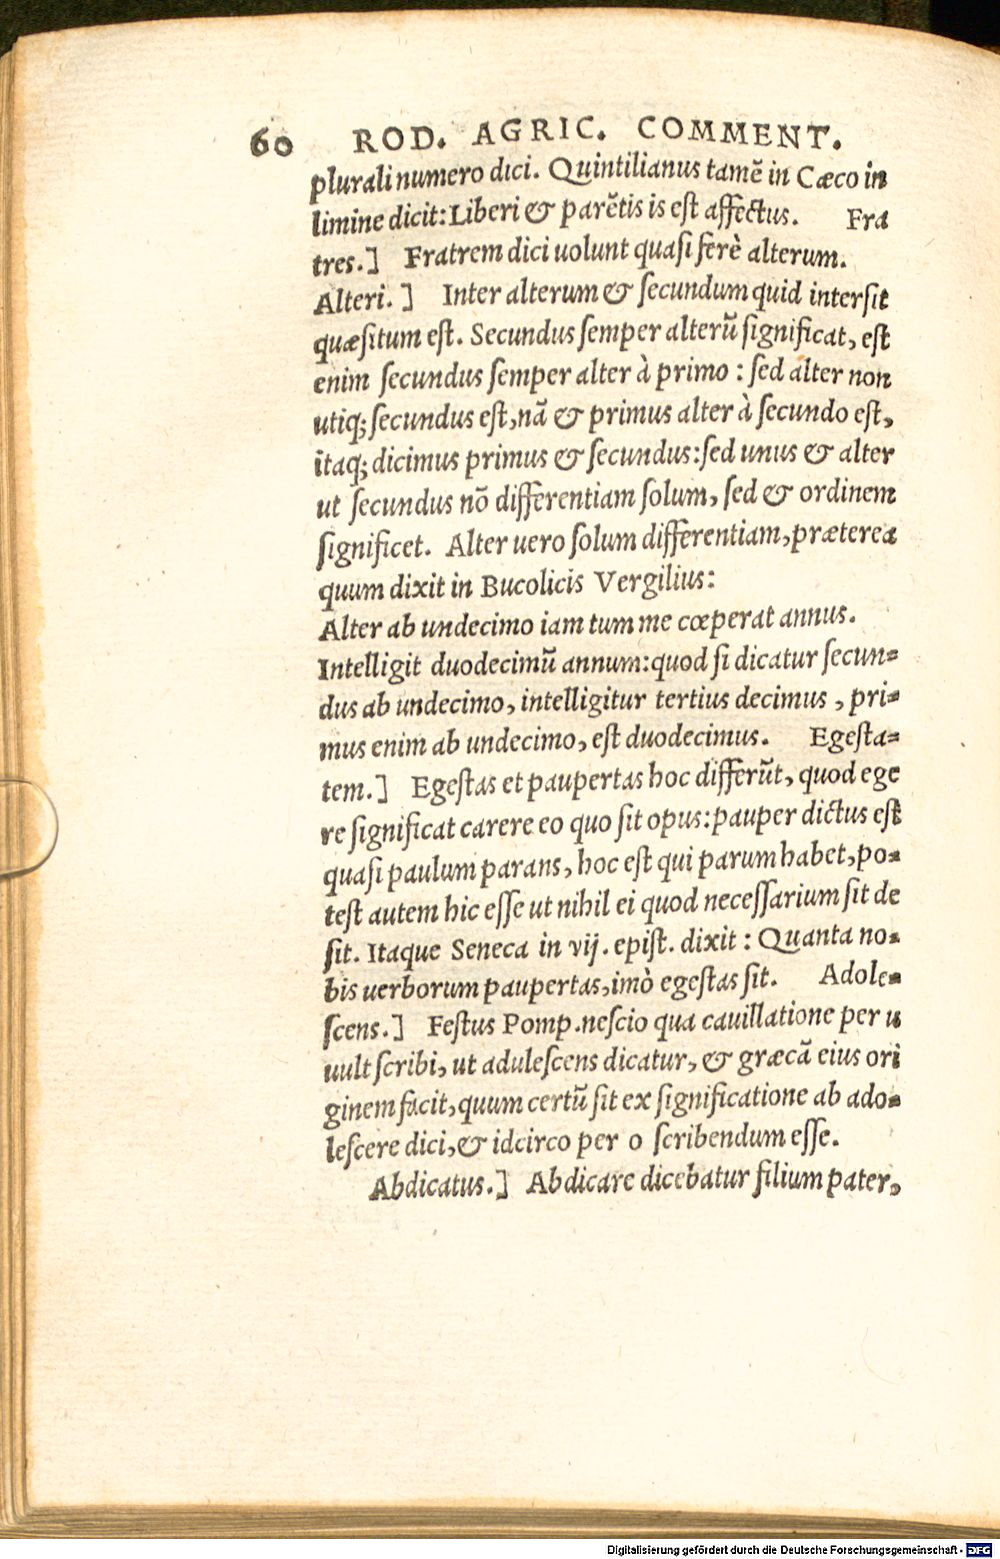 60 ROD. AGRIC. COMMENT.
plurali numero dici. Quintilianus tamẽ in Cæco in
limine dicit: Liberi & parẽtis is est affectus. Fra
tres.] Fratrem dici uolunt quasi ferè alterum.
Alteri.] Inter alterum & secundum quid intersit
quæsitum est. Secundus semper alterũ significat, est
enim secundus semper alter à primo: sed alter non
utiq; secundus est, nã & primus alter à secundo est,
itaq; dicimus primus & secundus: sed unus & alter
ut secundus nõ differentiam solum, sed & ordinem
significet. Alter uero solum differentiam, præterea
quum dixit in Bucolicis Vergilius:
Alter ab undecimo iam tum me cœperat annus.
Intelligit duodecimũ annum: quod si dicatur secun-
dus ab undecimo, intelligitur tertius decimus, pri-
mus enim ab undecimo, est duodecimus. Egesta-
tem.] Egestas et paupertas hoc differũt, quod ege
re significat carere eo quo sit opus: pauper dictus est
quasi paulum parans, hoc est qui parum habet, po-
test autem hic esse ut nihil ei quod necessarium sit de
sit. Itaque Seneca in vij. epist. dixit: Quanta no-
bis uerborum paupertas, imò egestas sit. Adole-
scens.] Festus Pomp. nescio qua cauillatione per u
uult scribi, ut adulescens dicatur, & græcã eius ori
ginem facit, quum certũ sit ex significatione ab ado-
lescere dici, & idcirco per o scribendum esse.
Abdicatus.] Abdicare dicebatur filium pater,
Digitalisierung gefördert durch die Deutsche Forschungsgemeinschaft - DFG